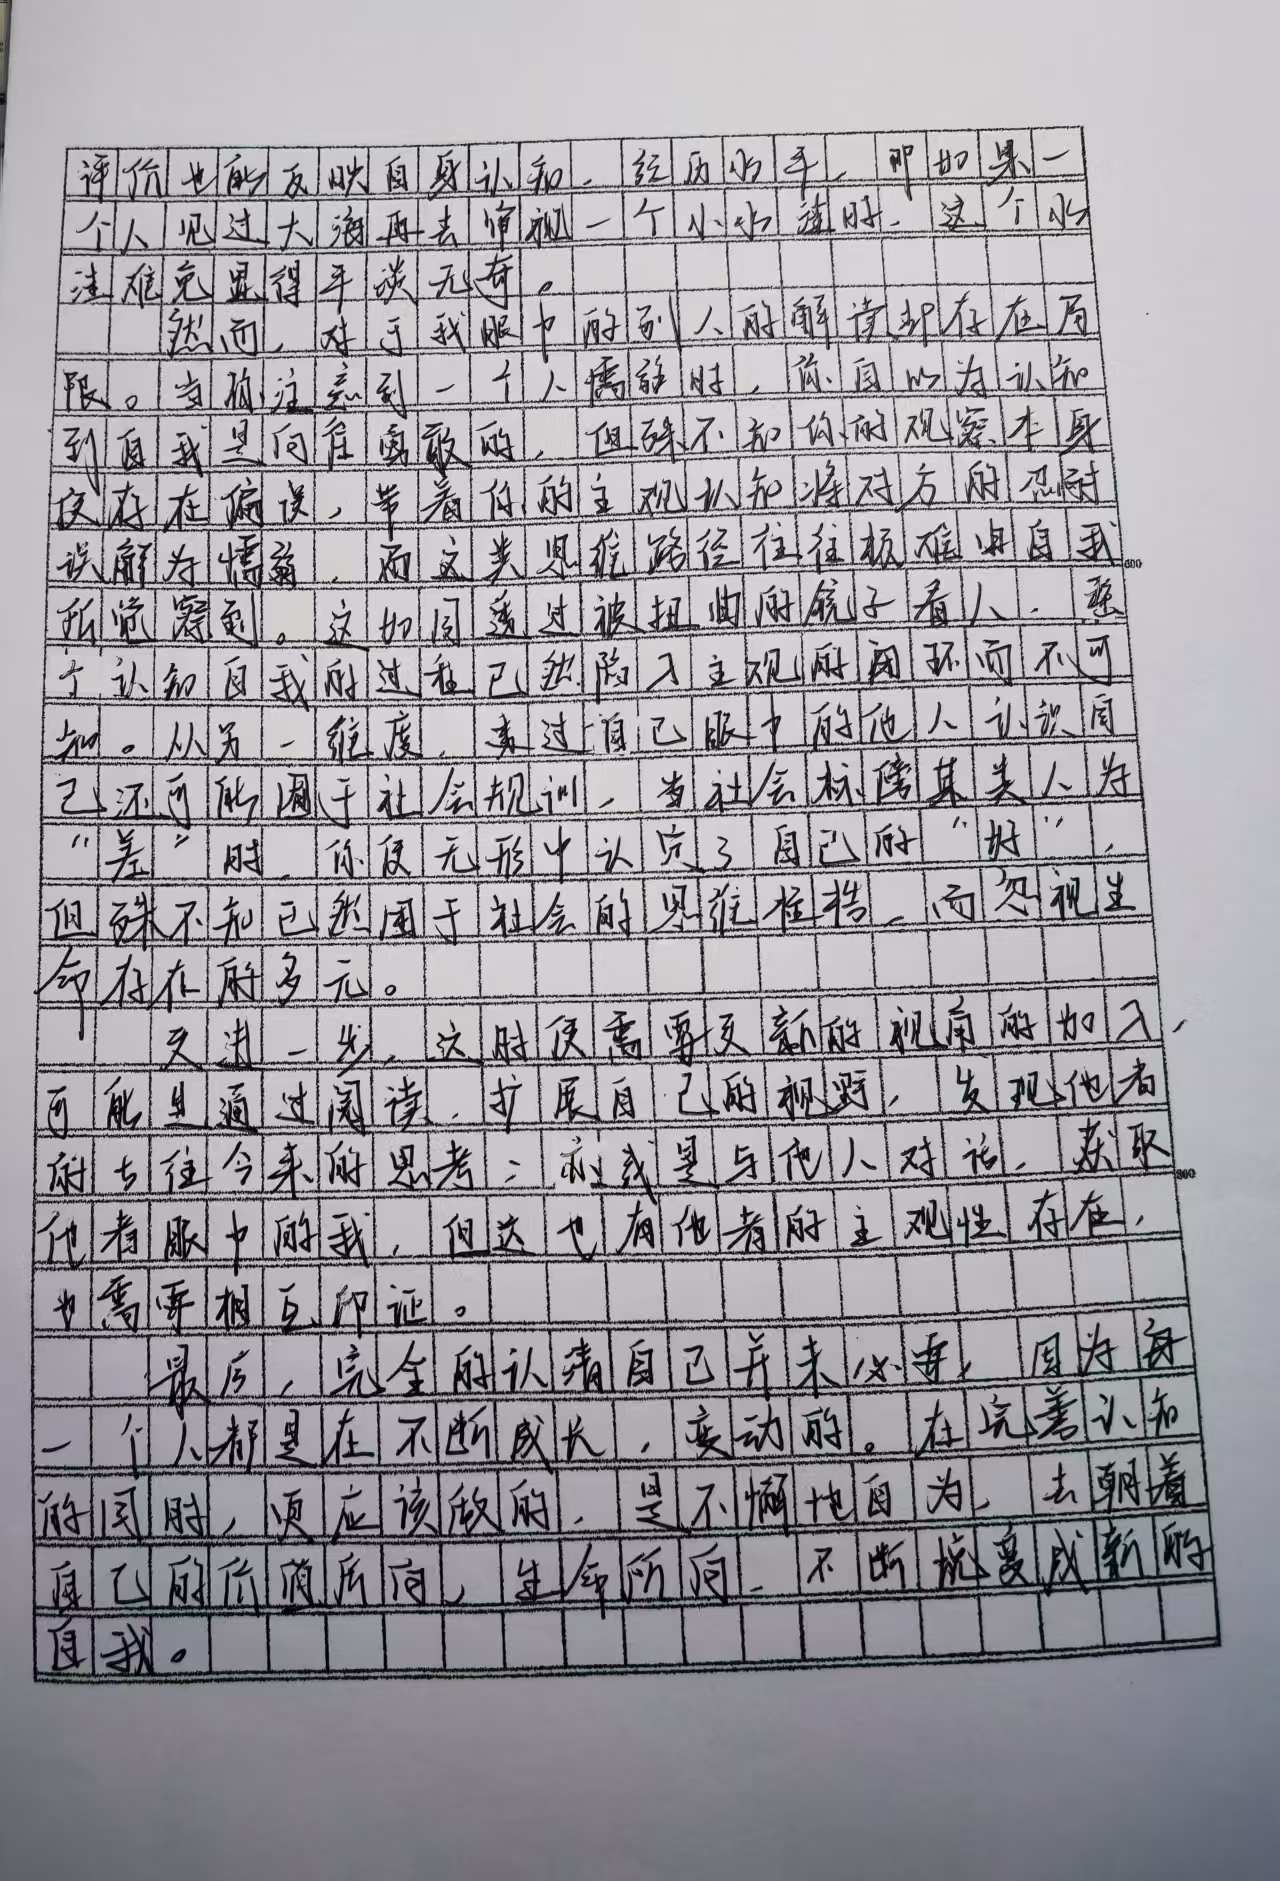 评价也能反映自身认知、经历水平，即如果一
个人见过大海再去审视一个小水洼时，这个水
洼难免显得平淡无奇。
然而，对于我眼中的别人的解读却存在局
限。当你注意到一个人懦弱时，你自以为认知
到自我是向往勇敢的，但殊不知你的观察本身
便存在偏误，带着你的主观认知将对方的忍耐
误解为懦弱，而这类思维路径往往极难由自我
所觉察到。这如同透过被扭曲的镜子看人，整
个认知自我的过程已然陷入主观的闭环而不可
知。从另一维度，透过自己眼中的他人认识自
己还可能囿于社会规训，当社会标榜某类人为
“差”时，你便无形中认完了自己的“好”，
但殊不知已然困于社会的思维桎梏，而忽视生
命存在的多元。
更进一步，这时便需要更新的视角的加入，
可能是通过阅读，扩展自己的视野，发现他者
的古往今来的思考；亦或是与他人对话，获取
他者眼中的我，但这也有他者的主观性存在，
也需要相互印证。
最后，完全的认清自己并未必要，因为每
一个人都是在不断成长，变动的。在完善认知
的同时，更应该做的，是不懈地自为，去朝着
自己的价值所向，生命所向，不断蜕变成新的
自我。
600
800